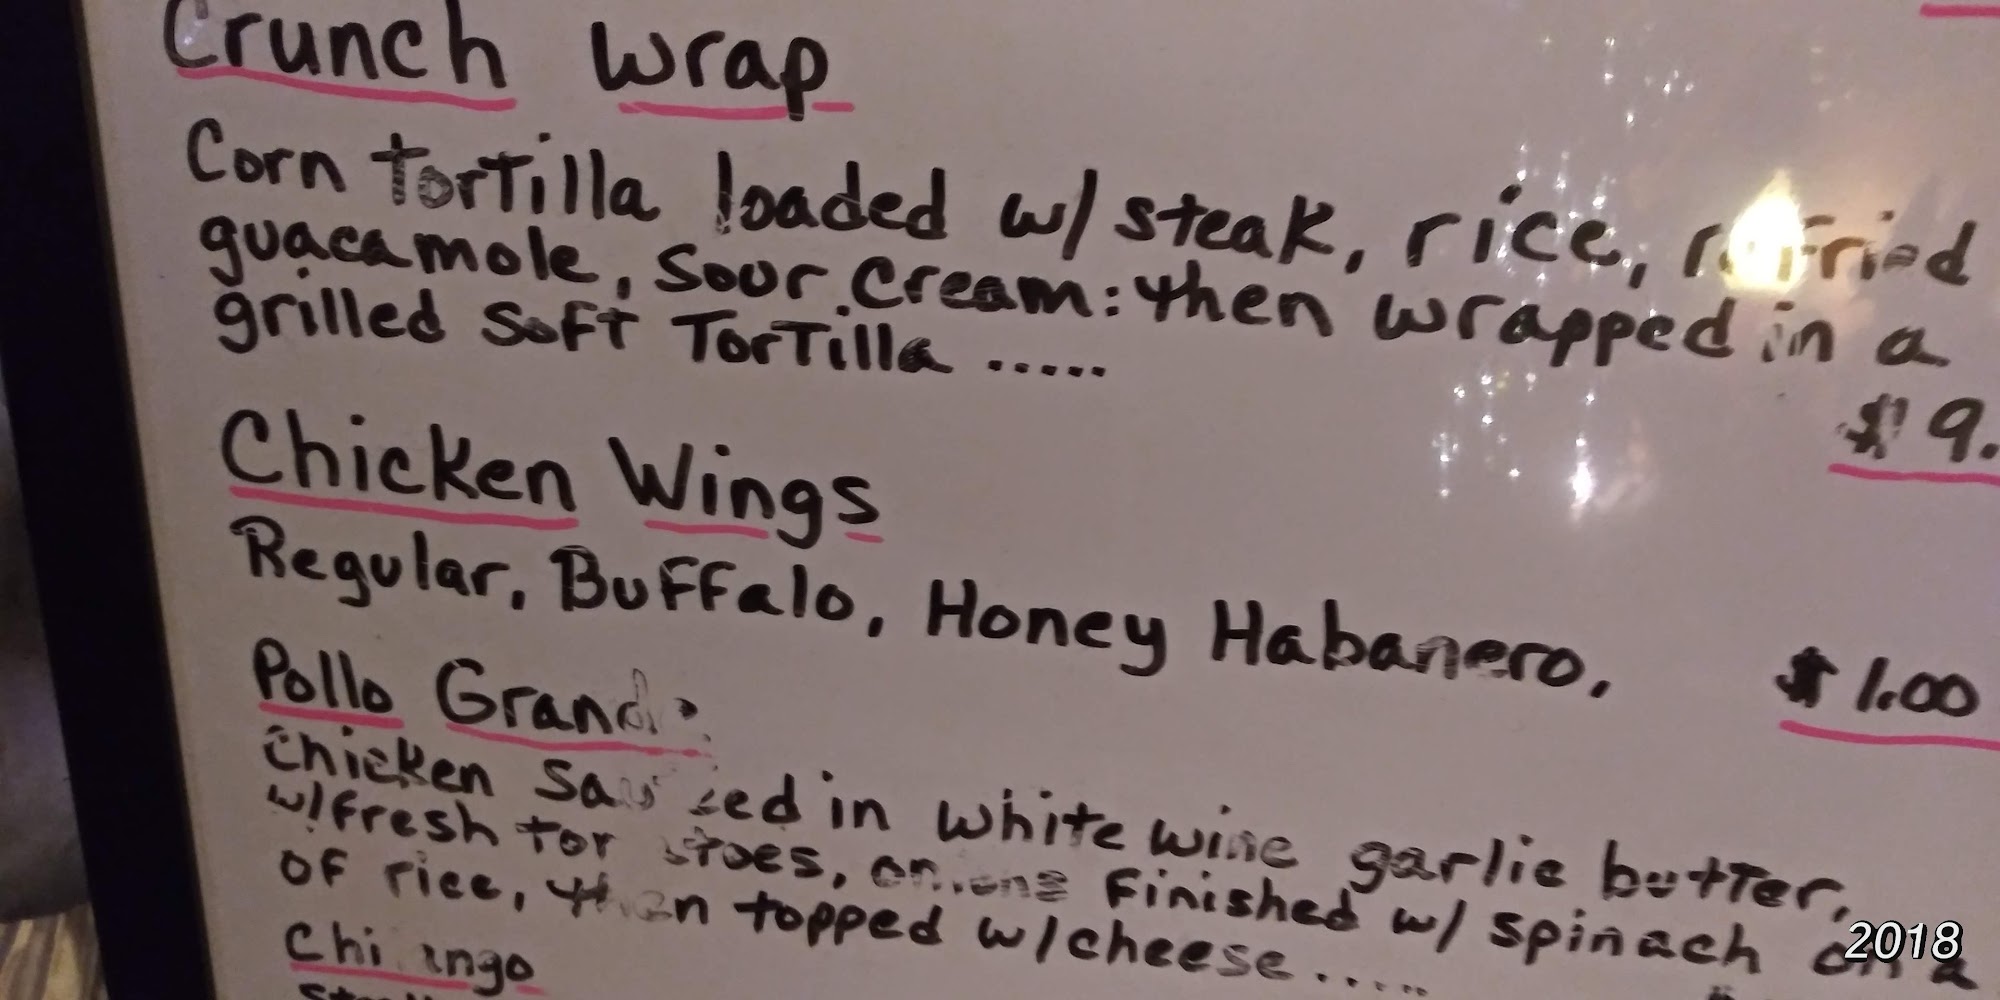 Crunch Wrap
Corn Tortilla loaded w/ steak, rice, refried
guacamole, Sour Cream: then wrapped in a
grilled Soft Tortilla .....
$9.
Chicken Wings
Regular, Buffalo, Honey Habanero. $1.00
Pollo Grand
Chicken in white wine garlic butter,
w/ fresh onions Finished w/ spinach on a
of rice, then topped w/ cheese .....
2018